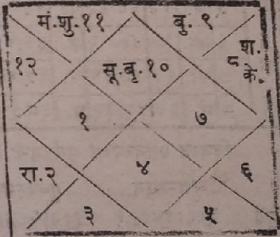 मं.शु.११ बु. ९
१२ सू.बृ.१० ८ श. के.
१ ७
रा.२ ४ ६
३ ५